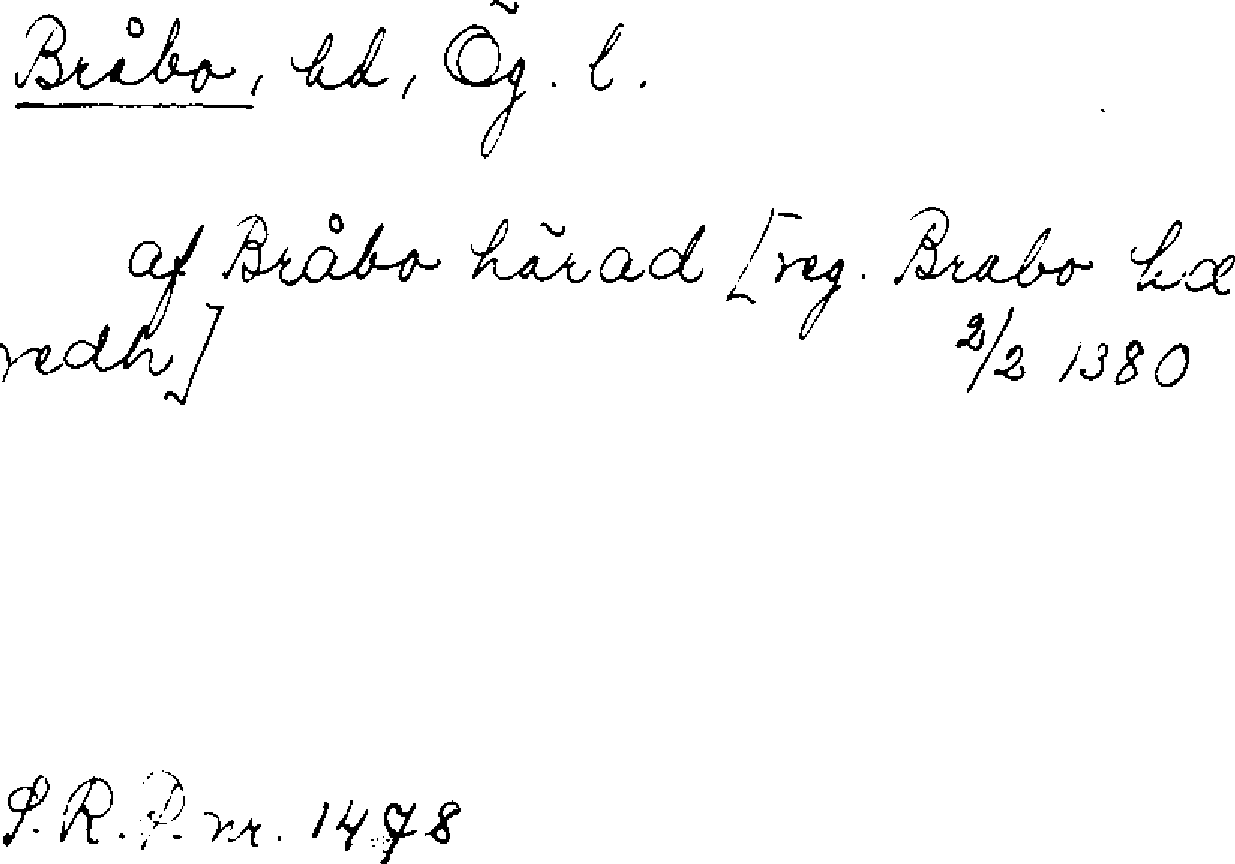 Bråbo, hd, Ög. l.
af Bråbo härad [reg. Brabo hæ
redh]
2/2 1380
S. R. P. nr. 1478